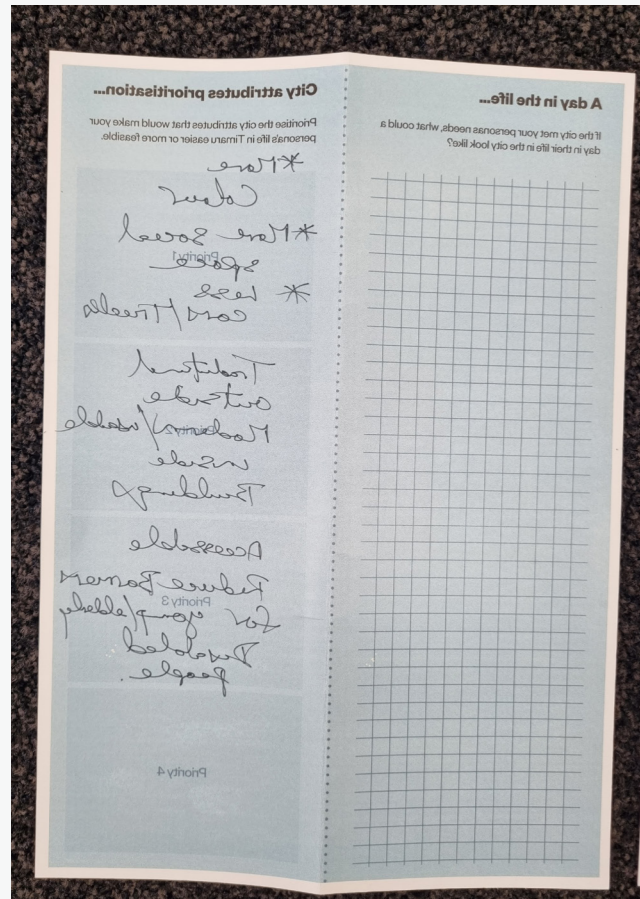 A day in the life...
If the city met your personas needs, what could a
day in their life in the city look like?
City attributes prioritisation...
Prioritise the city attributes that would make your
persona's life in Timaru easier or more feasible.
*More
Colour
*More Social
Priority 1
space
* Less
Traditional
outside
Modern/usable
Priority 2
inside
Buildings
Accessable
Reduce Barriers
Priority 3
for young/elderly
Disabled
people.
Priority 4